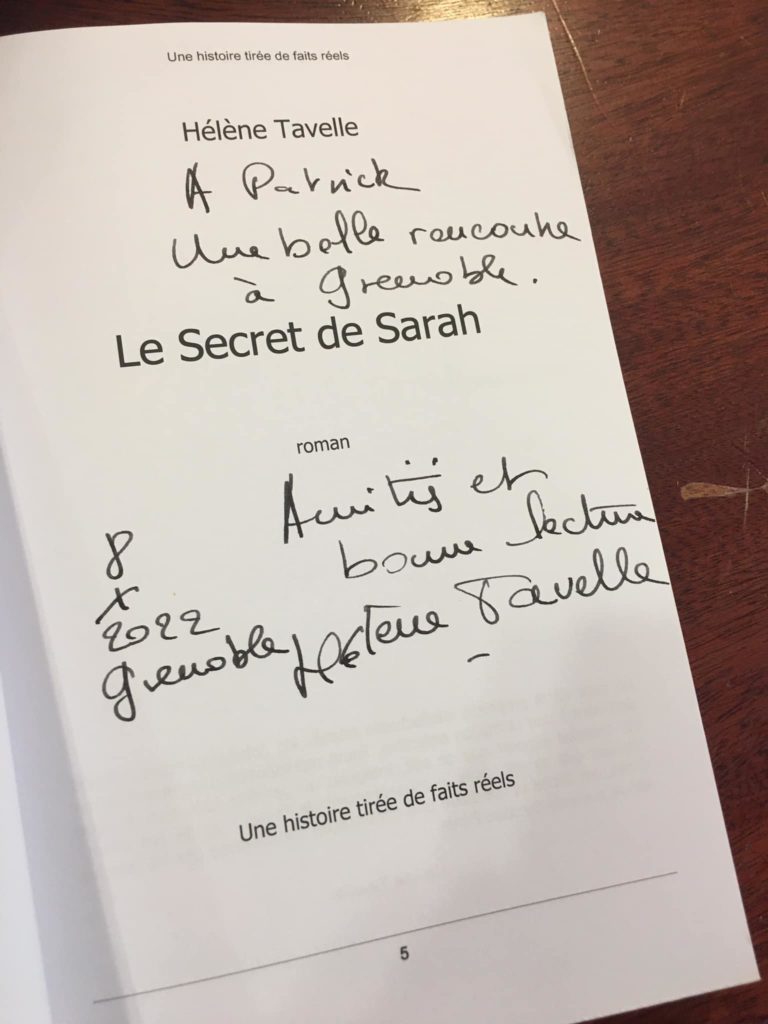 Une histoire tirée de faits réels
Hélène Tavelle
A Patrick
Une belle rencontre
à Grenoble.
Le Secret de Sarah
roman
Amitiés et
bonne lecture
8
X
2022
Grenoble
Hélène Tavelle
Une histoire tirée de faits réels
5